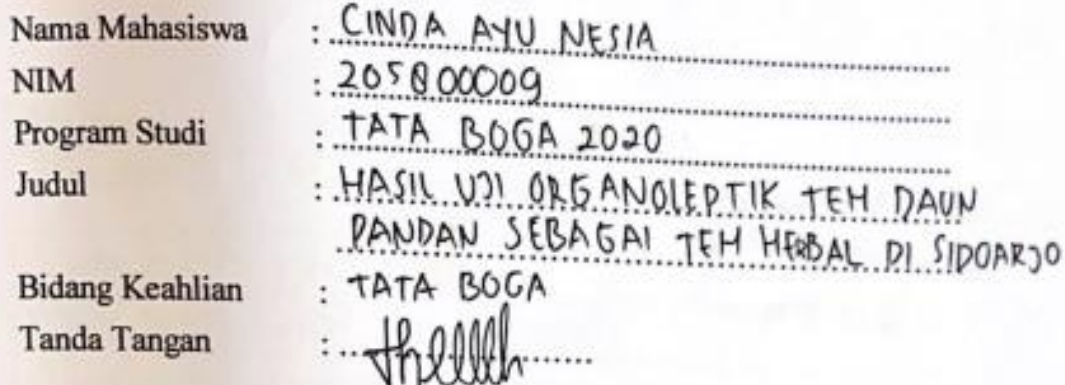 Nama Mahasiswa : CINDA AYU NESIA
NIM : 205800009
Program Studi : TATA BOGA 2020
Judul : HASIL UJI ORGANOLEPTIK TEH DAUN
PANDAN SEBAGAI TEH HERBAL DI SIDOARJO
Bidang Keahlian : TATA BOGA
Tanda Tangan :